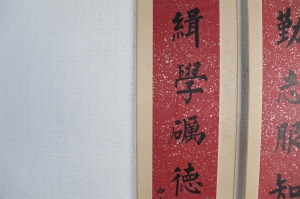 勤志服知
緝學礪德